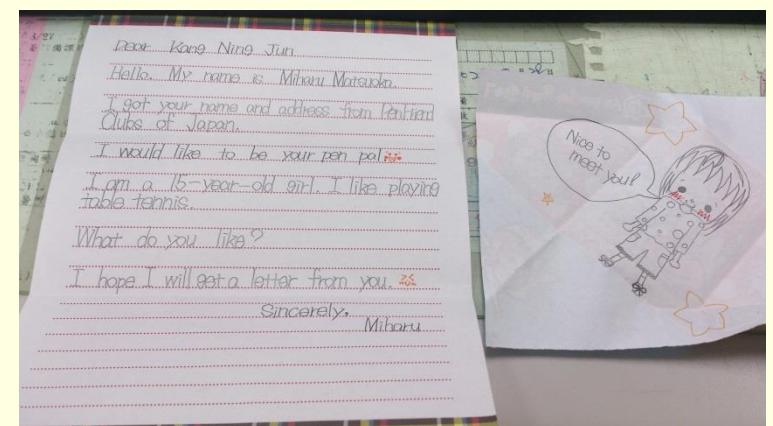 Dear Kang Ning Jun
Hello. My name is Miharu Matsuoka.
I got your name and address from Penfriend
Clubs of Japan.
I would like to be your pen pal
I am a 15-year-old girl. I like playing
table tennis.
What do you like?
I hope I will get a letter from you.
Sincerely,
Miharu
Nice to
meet you!